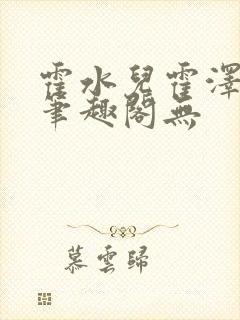 霍水兒霍澤
筆趣閣無
慕雲歸